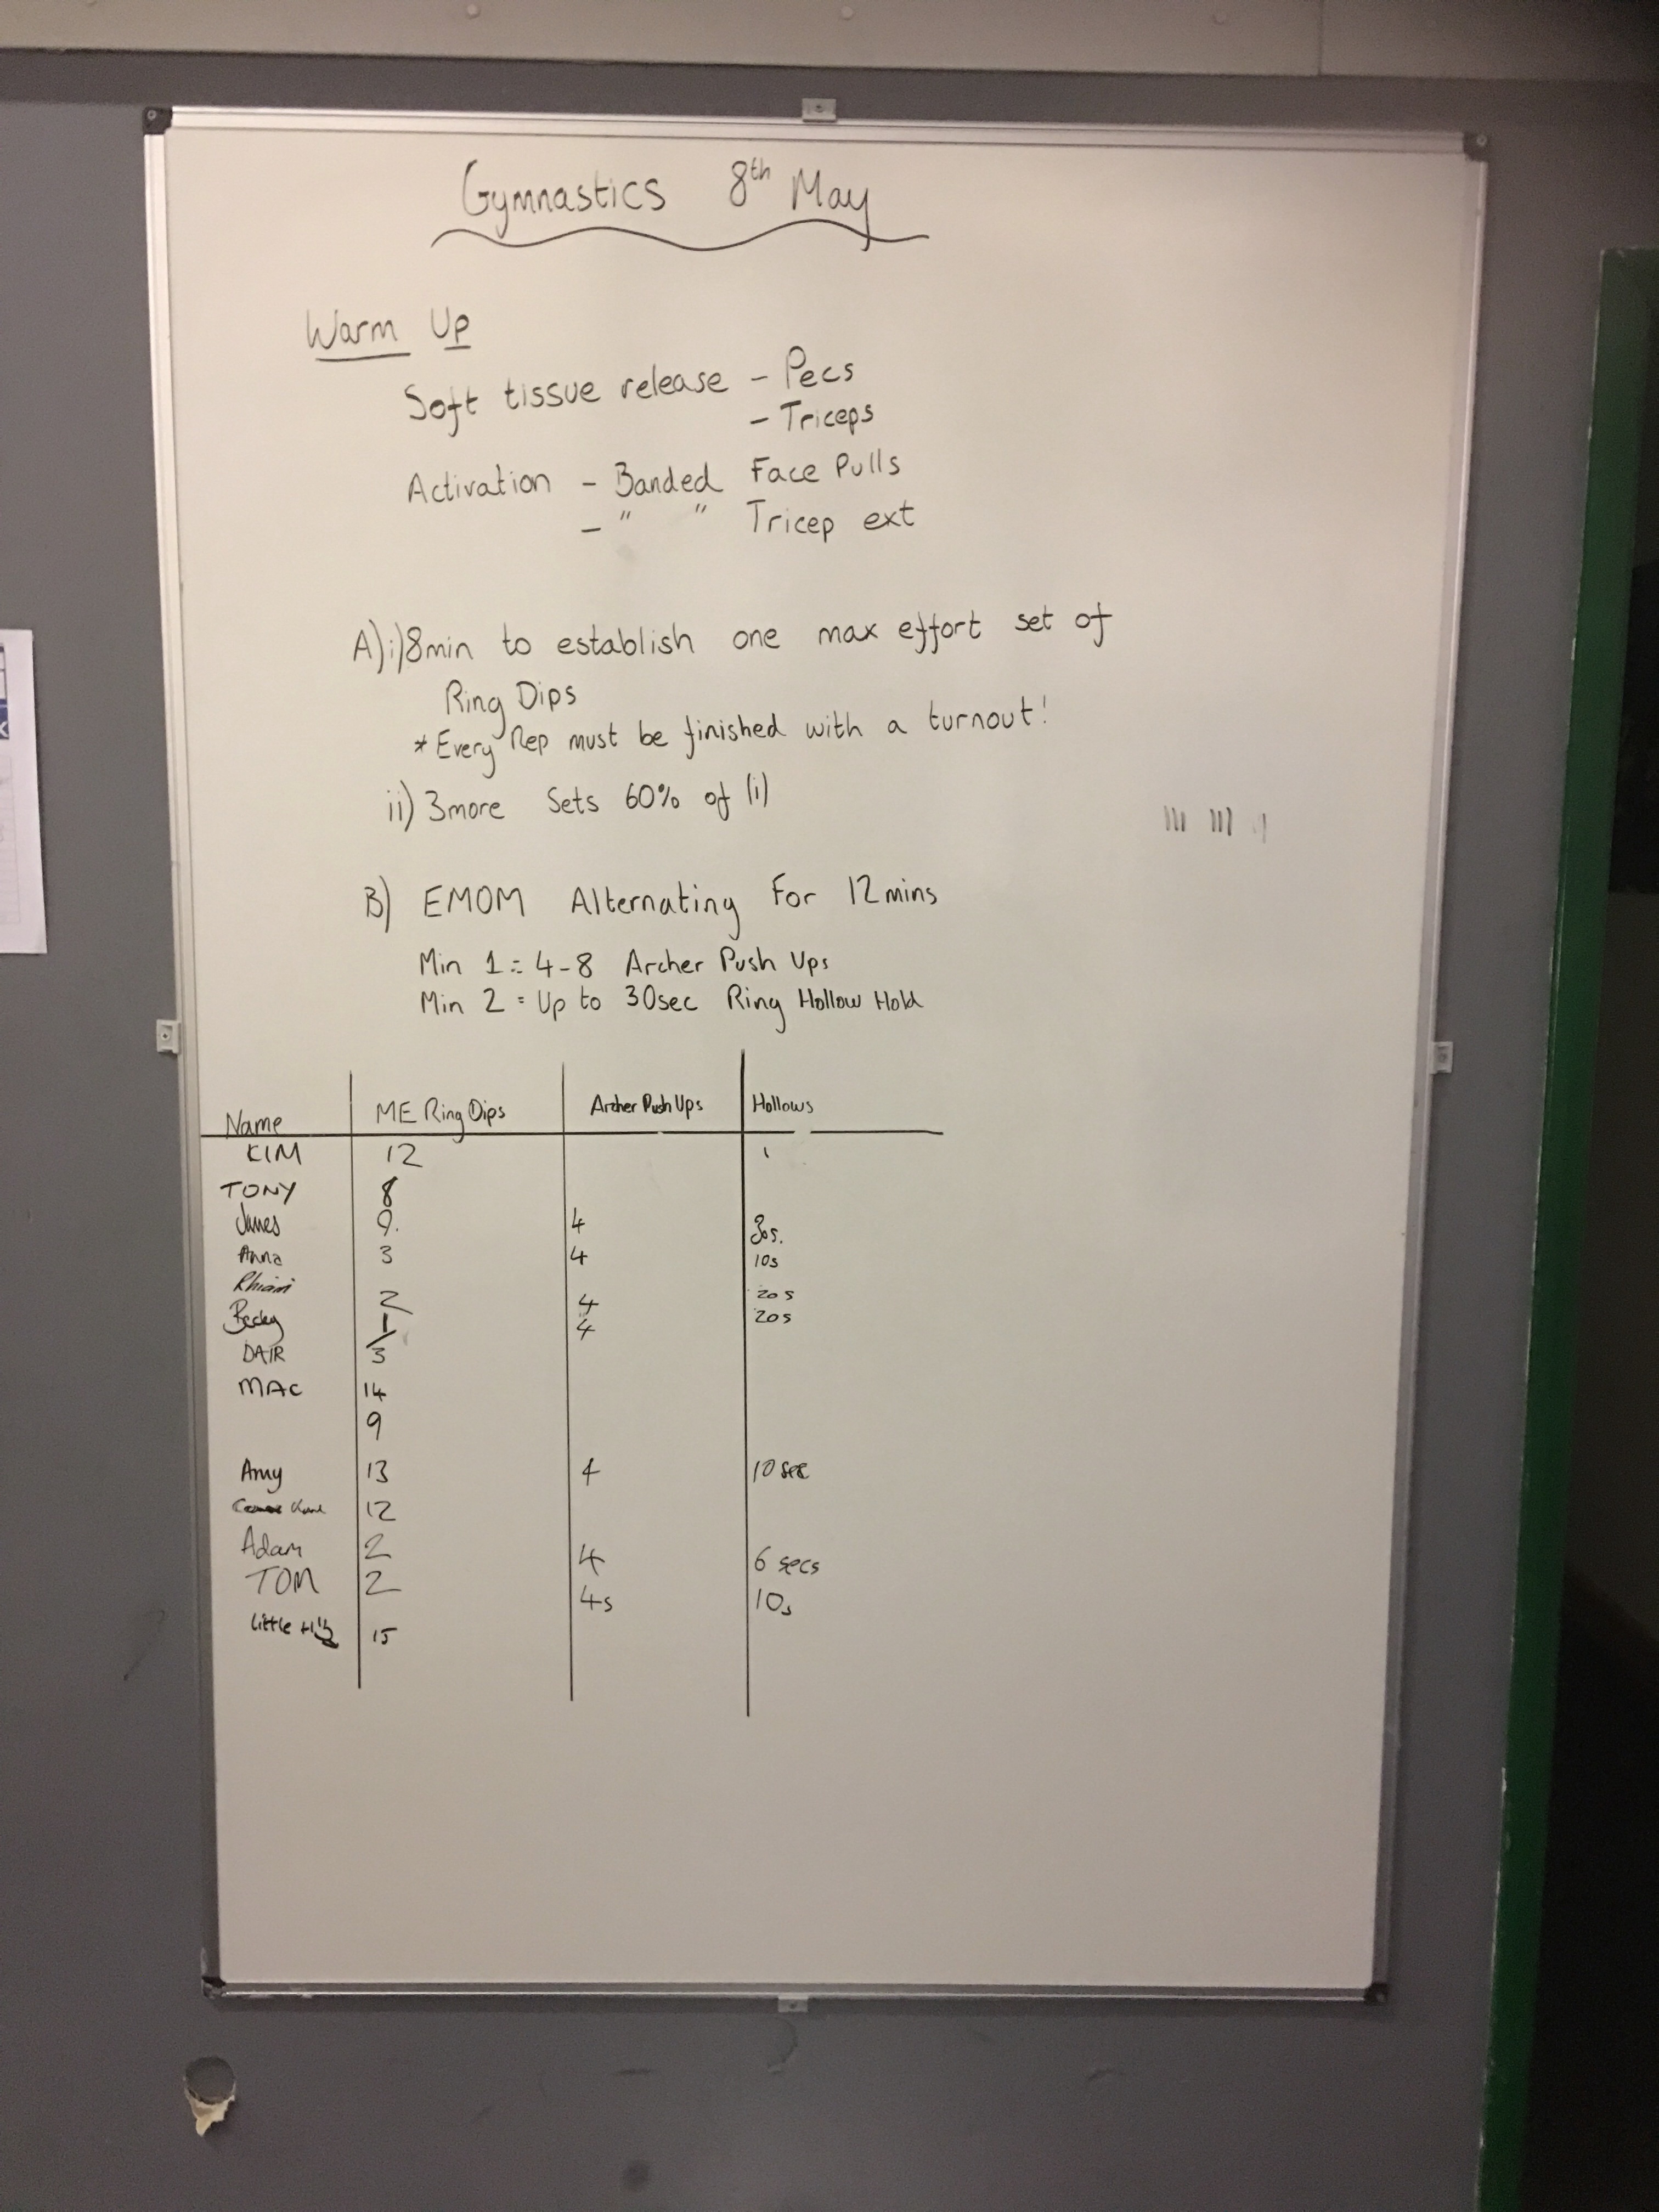 Gymnastics 8th May
Warm Up
Soft tissue release - Pecs
- Triceps
Activation - Banded Face Pulls
- " " Tricep ext
A) i) 8min to establish one max effort set of
Ring Dips
* Every Rep must be finished with a turnout!
ii) 3more Sets 60% of (i)
B) EMOM Alternating For 12mins
Min 1 = 4-8 Archer Push Ups
Min 2 = Up to 30sec Ring Hollow Hold
Name ME Ring Dips Archer Push Ups Hollows
KIM 12
TONY 8
James 9. 4 30s.
Anna 3 4 10s
2 4 20s
Becky 1 4 20s
DAIR 3
MAC 14
9
Amy 13 4 10 sec
12
Adam 2 4 6 secs
TOM 2 4s 10s
Little 15